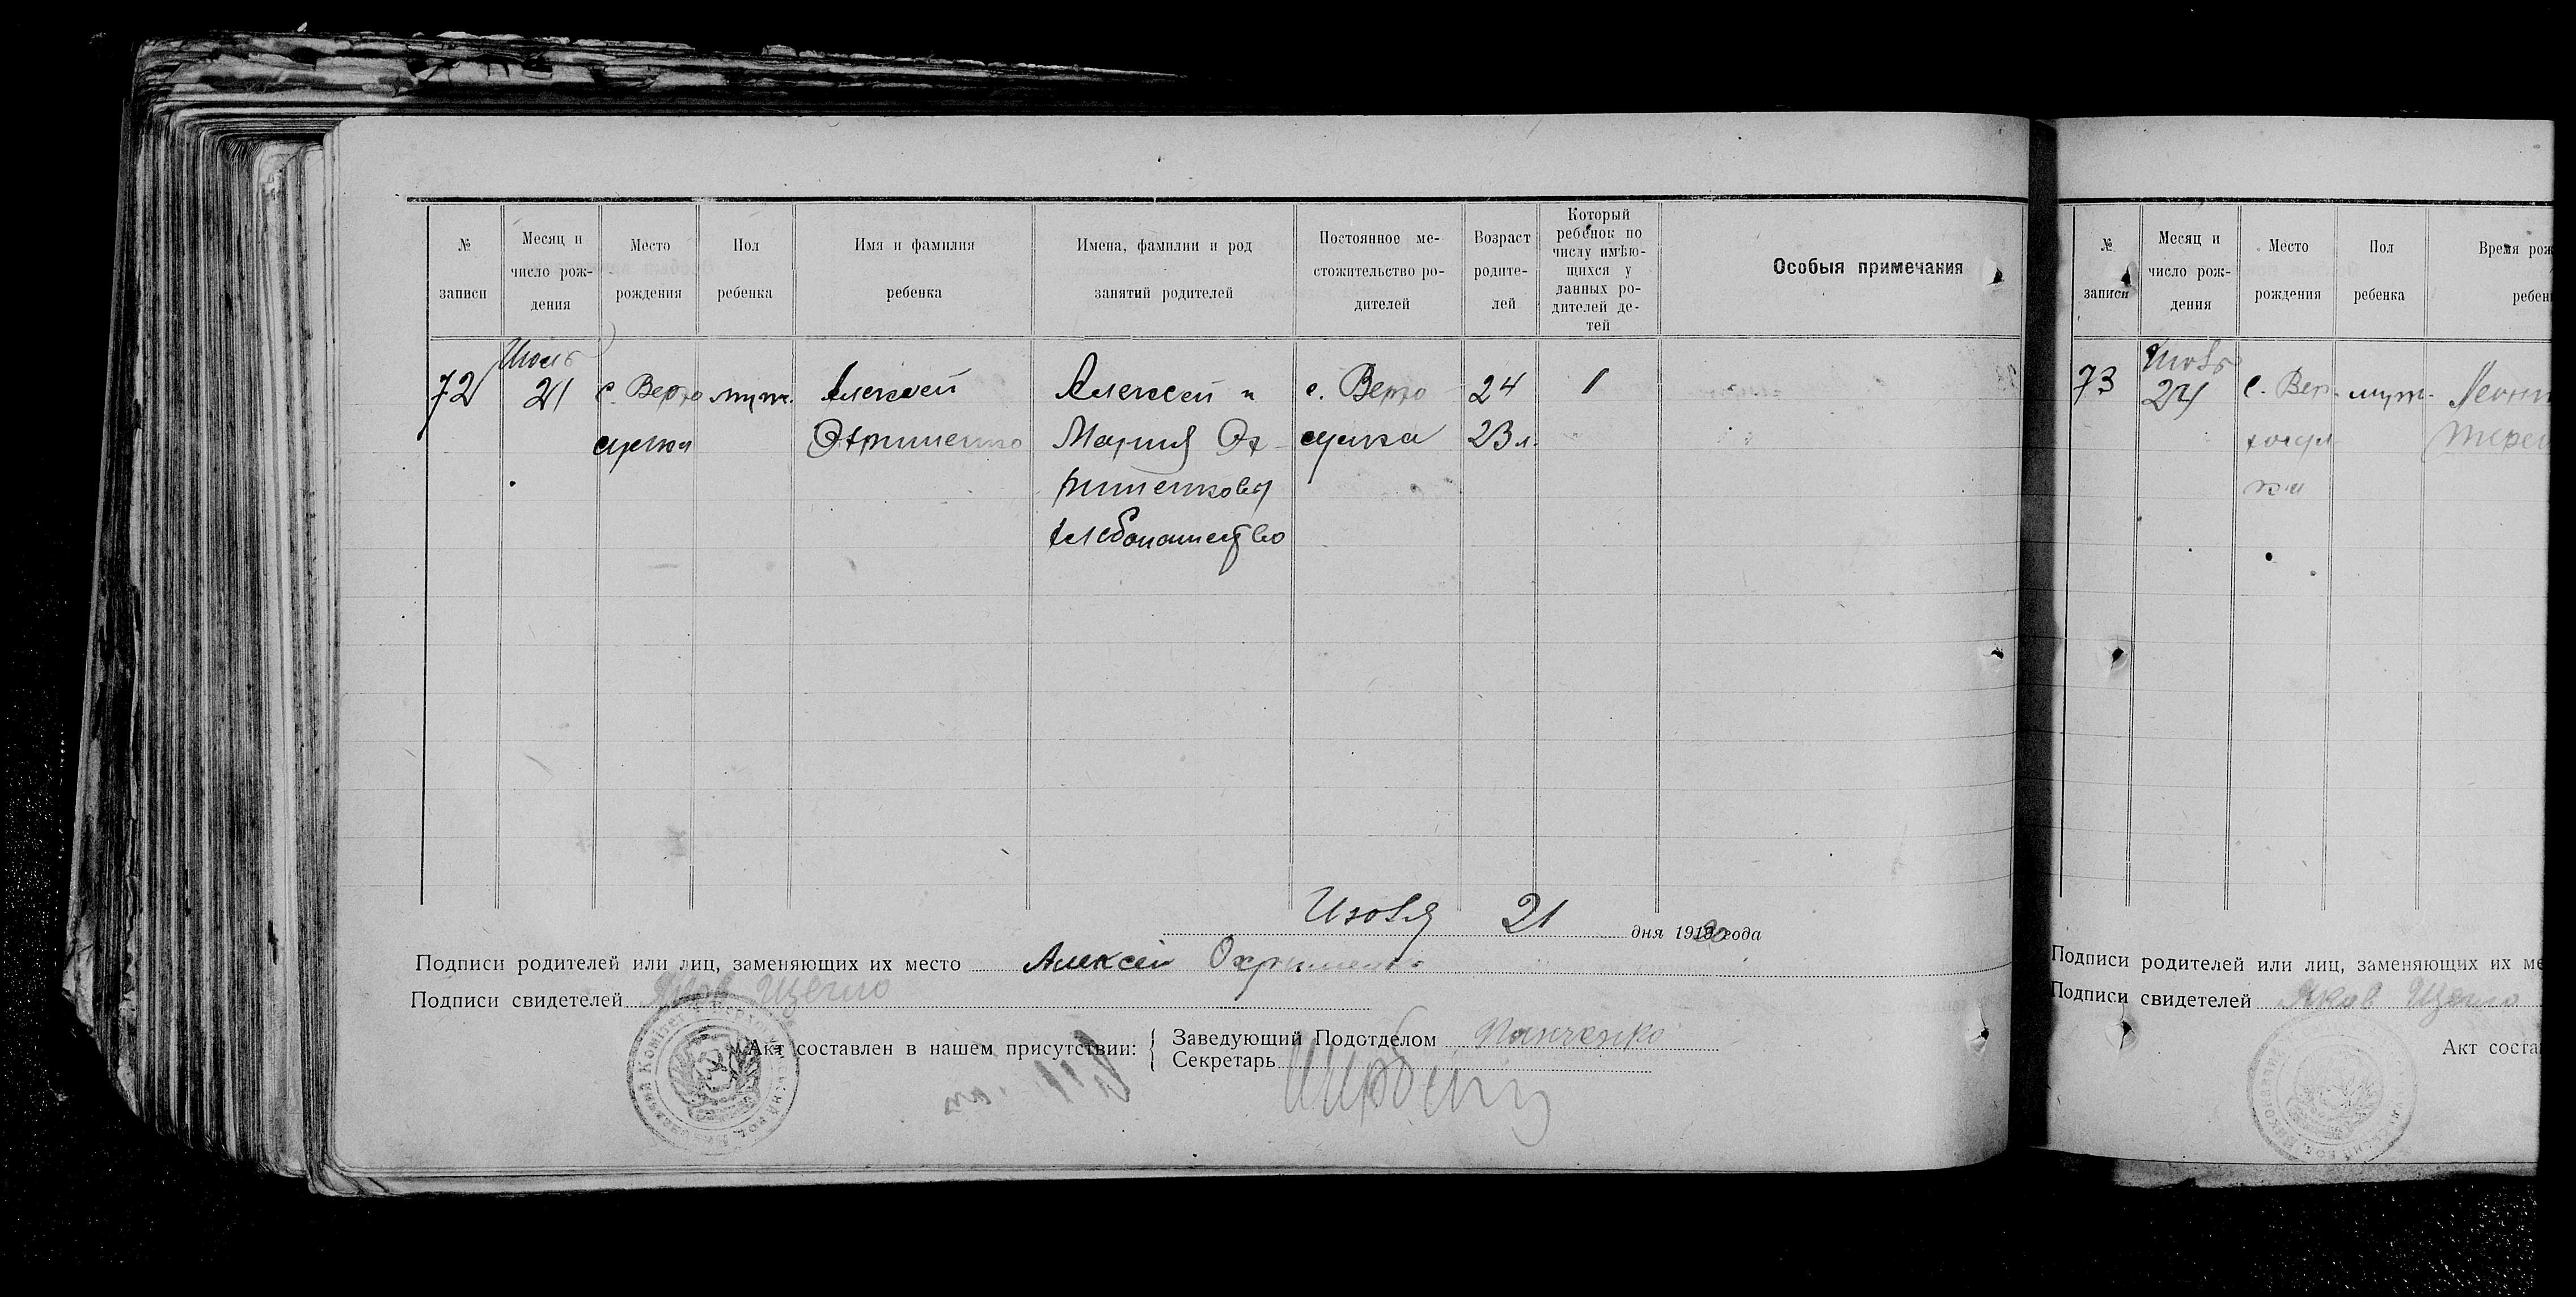 №
записи
Месяц и
число рож-
дения
Место
рождения
Пол
ребенка
Имя и фамилия
ребенка
Имена, фамилии и род
занятий родителей
Постоянное ме-
стожительство ро-
дителей
Возраст
родите-
лей
Который
ребенок по
числу имѣю-
щихся у
данных ро-
дителей де-
тей
Особыя примечания
72
Июль
21
с. Верхо
сулка
муж.
Алексей
Охрименко
Алексей и
Мария Ох-
рименковы
хлебопашество
с. Верхо
сулка
24
23 л.
1
Июля 21 дня 1920 года
Подписи родителей или лиц, заменяющих их место Алексей Охрименко
Подписи свидетелей Яков Щегло
Акт составлен в нашем присутствии:
Заведующий Подотделом Панченко
Секретарь
№
записи
Месяц и
число рож-
дения
Место
рождения
Пол
ребенка
Время рож
ребен
73
Июль
24
с. Вер-
хосул
ка
муж.
Подписи родителей или лиц, заменяющих их ме
Подписи свидетелей Яков Щегло
Акт соста